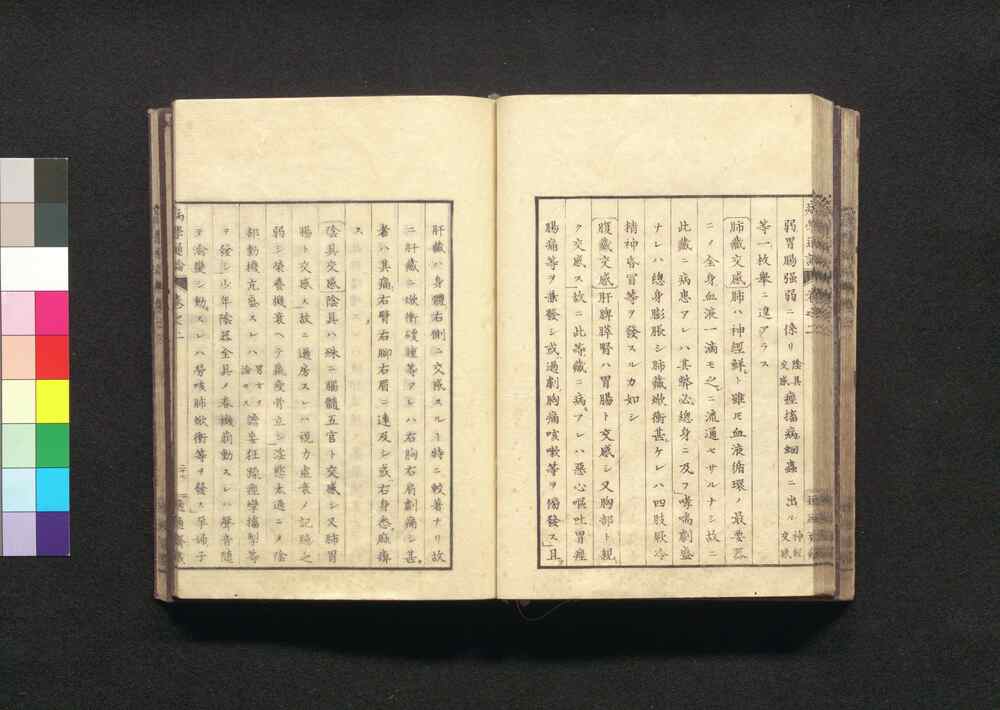 弱胃腸强弱ニ係リ陰具交感痙搐病蛔蟲ニ出ル神經交感
等一一枚擧ニ遑アラス
肺臓交感肺ハ神經鮮シト雖モ血液循環ノ最要器
ニノ全身血液一滴モ之ニ流通セサルナシ故ニ
此臓ニ病患アレハ其弊必總身ニ及フ哮喘劇盛
ナレハ總身膨脹シ肺臓焮衝甚ケレハ四肢厥冷
精神昏冒等ヲ發スルカ如シ
腹臓交感肝脾膵腎ハ胃腸ト交感シ又胸部ト親
ク交感ス故ニ此等臓ニ病アレハ惡心嘔吐胃痙
腸痛等ヲ兼發シ或過劇胸痛咳嗽等ヲ傍發ス且
肝臓ハ身體右側ニ交感スルコト特ニ較著ナリ故
ニ肝臓ニ焮衝硬腫等アレハ右胸右肩劇痛シ甚
者ハ其痛右臂右脚右眉ニ連及シ或右身悉麻痺
ス
陰具交感陰具ハ殊ニ腦髓五官ト交感シ又肺胃
腸ト交感ス故ニ過房スレハ視力虚衰ノ記臆之
弱シ榮養機衰ヘテ羸痩骨立シ淫慾太過ニノ陰
部動機亢盛スレハ男女ヲ論セス譫妄狂躁痙攣搐掣等
ヲ發シ少年陰器全具ノ春機萌動スレハ聲音隨
テ渝變シ動スレハ勞咳肺焮衝等ヲ發ス孕婦子
病學通論 卷之二